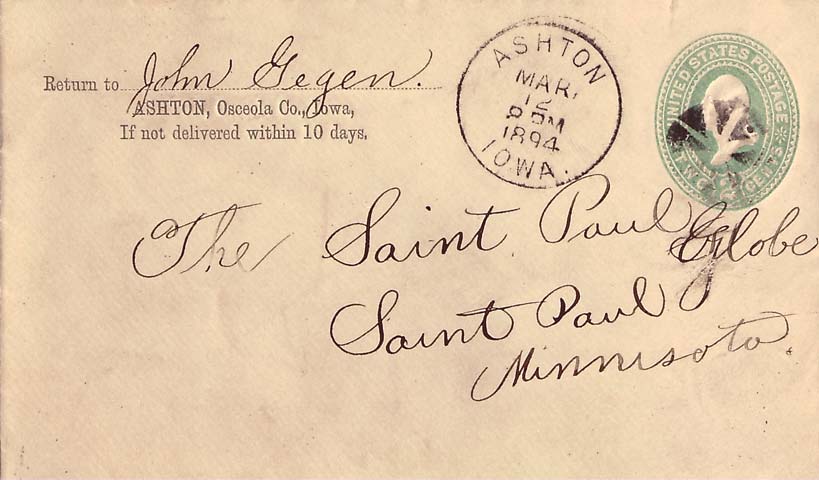 Return to John Gegen.
ASHTON, Osceola Co., Iowa,
If not delivered within 10 days.
ASHTON
MAR
12
8 PM
1894
IOWA.
UNITED STATES POSTAGE
TWO CENTS
2
The Saint Paul Globe
Saint Paul
Minnisota.